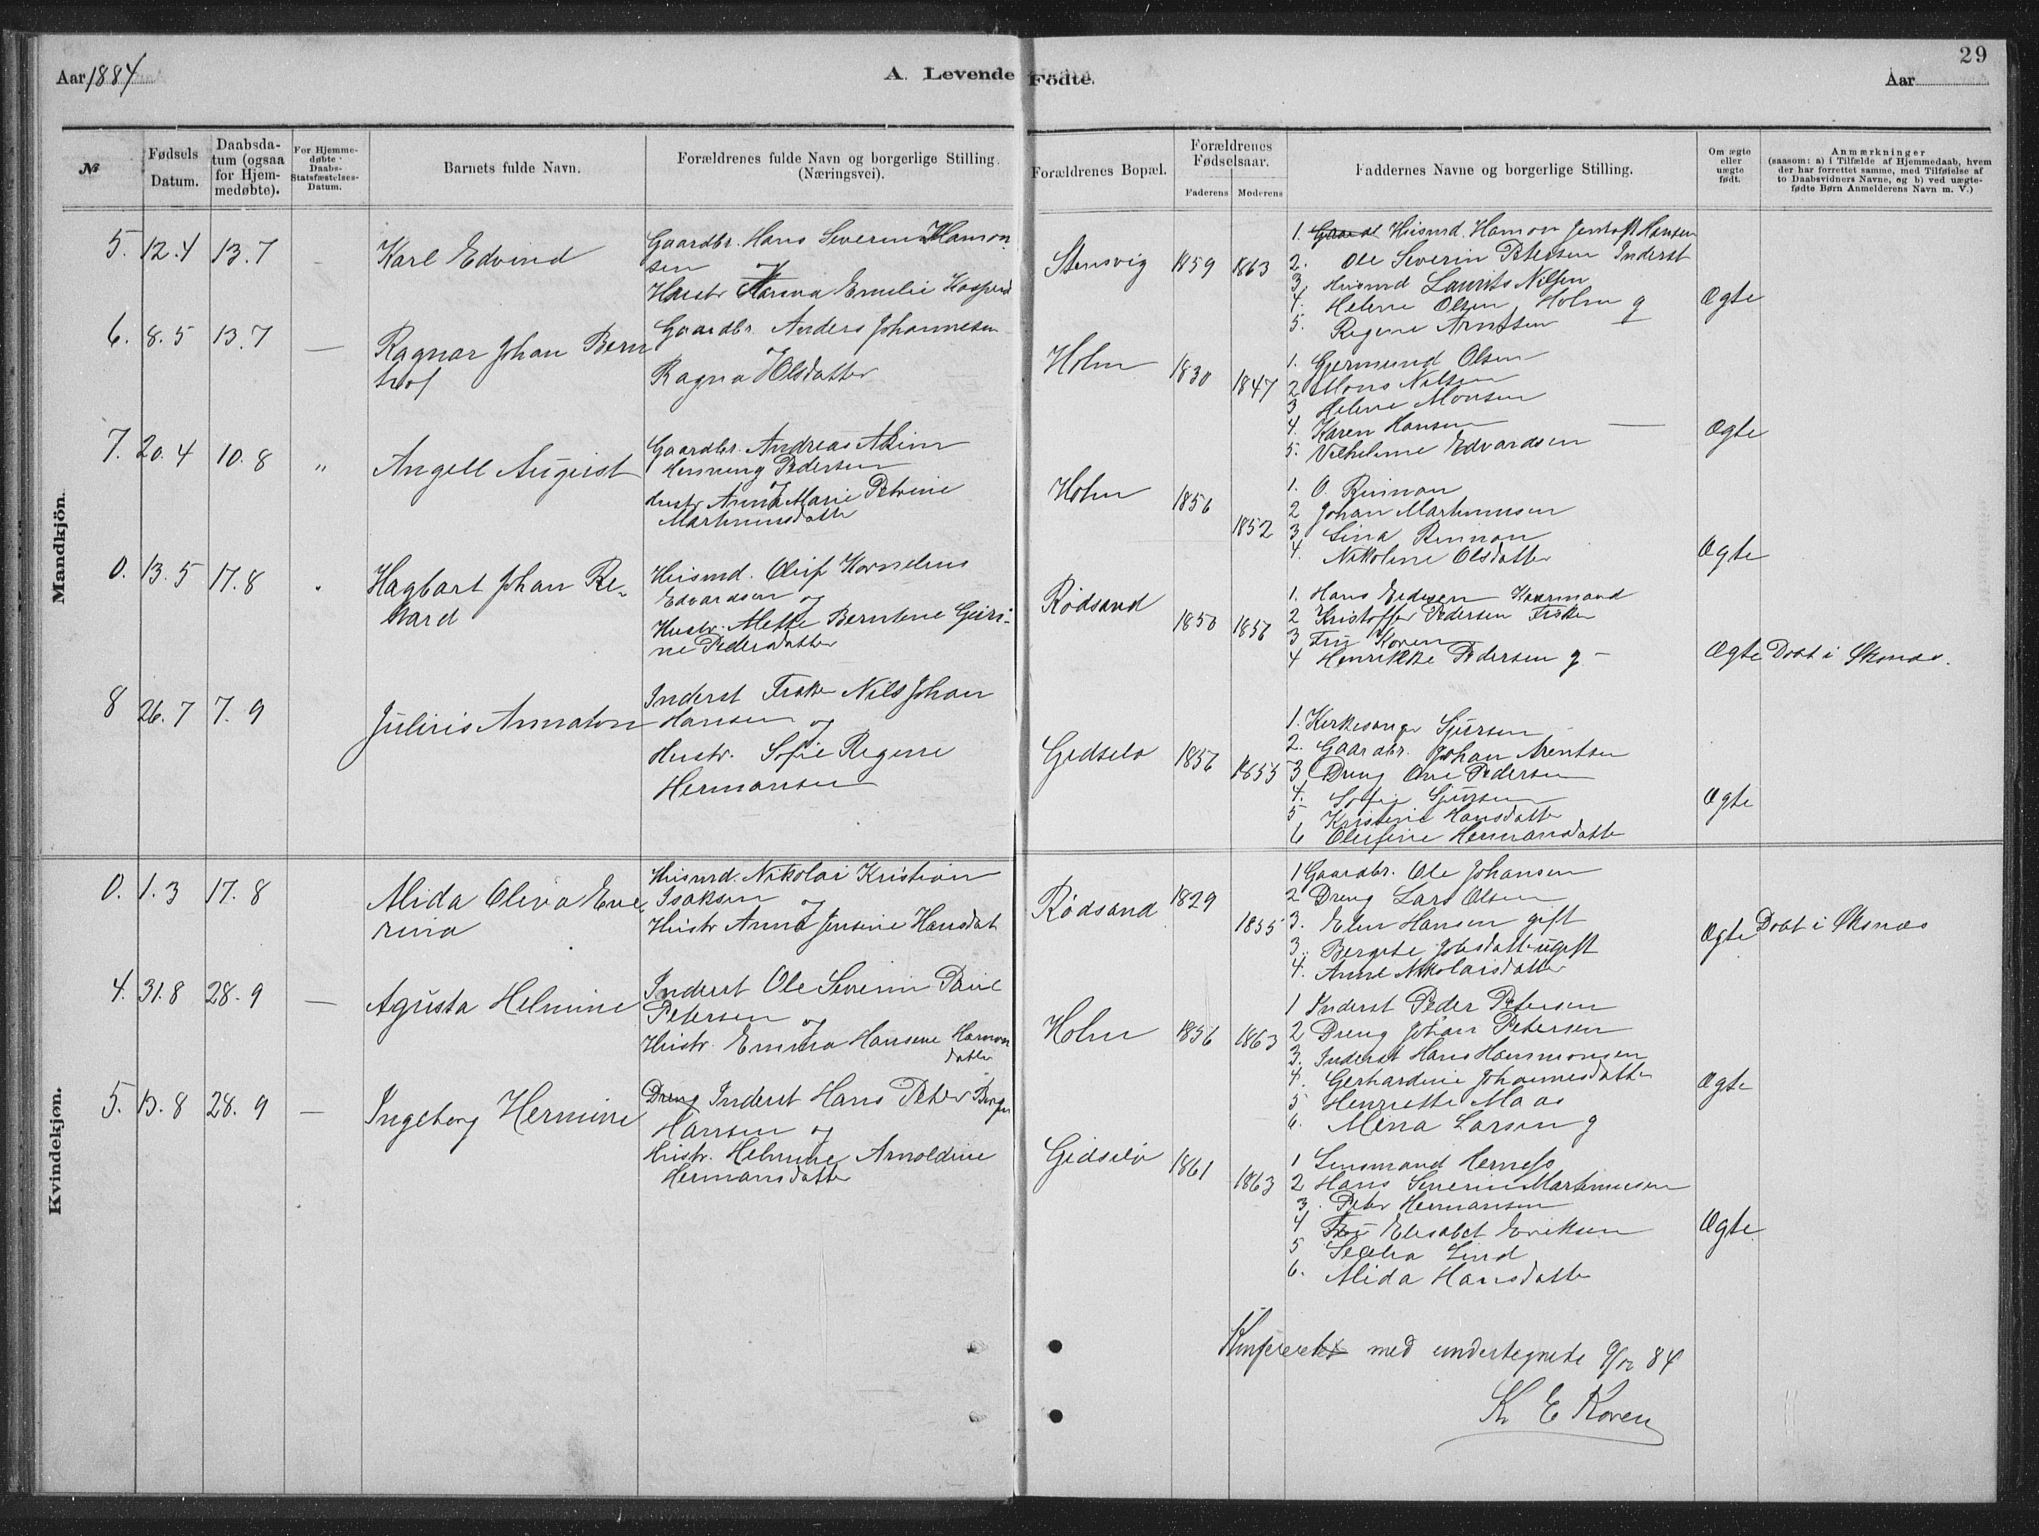 Aar 1884
A. Levende Födte.
Aar
29
№
Fødsels Datum.
Daabsda-
tum (ogsaa
for Hjem-
medøbte).
For Hjemme-
døbte
Daabs-
Statsfæstelses-
Datum.
Barnets fulde Navn.
Forældrenes fulde Navn og borgerlige Stilling
(Næringsvei).
Forældrenes Bopæl.
Forældrenes
Fødselsaar.
Faderens
Moderens
Faddernes Navne og borgerlige Stilling.
Om ægte
eller
uægte
født.
Anmærkninger
(saasom: a) i Tilfælde af Hjemmedaab, hvem
der har forrettet samme, med Tilføielse af
to Daabsvidners Navne, og b) ved uægte-
fødte Børn Anmelderens Navn m. V.)
Mandkjön.
5. 12.4 13.7
Karl Edvind
Gaardbr. Hans Severin Hamon
sen og
Hustr Emelie
Stensvig 1859 1863
1. Husmd. Hamon Jentoft Hansen
2. Ole Severin Petersen Inderst
3. Husmd Laurits Nilsen
4. Helene Olsen Holm g
5. Regine Arntsen
Ægte
6. 8.5 13.7 —
Ragnar Johan Bern
tof
Gaardbr. Anders Johannesen
og
Ragna Olsdatter
Holm 1830 1847
1. Gjermund Olsen
2 Mons Nilsen
3 Helene Monsen
4. Karen Hansen —
5. Vilhelmine Edvardsen
Ægte
7. 20.4 10.8 "
Angell August
Gaardbr. Andreas
Henning Pedersen
og
Hustr Anna Marie Petrine
Martinusdatte
Holm 1856 1852
1. O. Rinnan
2 Johan Martinusen
3 Lina Rinnan
4. Nikoline Olsdatter
Ægte
0. 13.5 17.8
Hagbart Johan Re-
kard
Husmd. Oluf Kornelius
Edvardsen og
Hustr. Mette Berntine Guri-
ne Pedersdatter
Rødsand 1850 1856
1. Hans
2 Kristoffer Pedersen Fisker
3 Fru Koren
4 Henrikke Pedersen g —
Ægte Døbt i Øksnæs.
8 26.7 7.9
Julius Annaton
Inderst Fisker Nils Johan
Hansen og
Hustr. Sofie Regine
Hermansen
Gidselø 1856 1855
1. Kirkesanger Sjursen
2. Gaardbr. Johan Arentsen
3 Dreng Ove Pedersen
4. Sofie Sjursen
5 Kristine Hansdatte
6 Olufine Hermansdatte
Ægte
Kvindekjøn.
0. 1.3 17.8
Alida Oliva Eve
rina
Husmd. Nikolai Kristian
Isaksen og
Hustr Anna Jensine Hansdat
Rødsand 1829 1855
1 Gaardbr. Ole Johansen
2 Dreng Lars Olsen
3. Elen Hansen gift
3. Bergete ugift
4. Anne Nikolaisdatter
Ægte Døbt i Øksnæs
4. 31.8 28.9 —
Agusta Helmine
Inderst Ole Severin
Petersen og
Hustr. Emma Hansine Hamon
datter
Holm 1856 1863
1 Inderst Peder Petersen
2 Dreng Johan Petersen
3. Inderst Hans Hansmonsen
4. Gerhardine Johannesdatte
5 Henriette Maas
6. Mina Larsen g
Ægte
5. 13.8 28.9 —
Ingeborg Hermine
Dreng Inderst Hans Peter
Hansen og
Hustr. Helmine Arnoldine
Hermansdatte
Gidselø 1861 1863
1 Lensmand Herness
2 Hans Severin Martinusen
3. Peter Hermansen
4 Elisabet Eriksen
5 Lind
6. Alida Hansdatte
Ægte
Konfereret med undertegnede 9/12 84
K E Koren